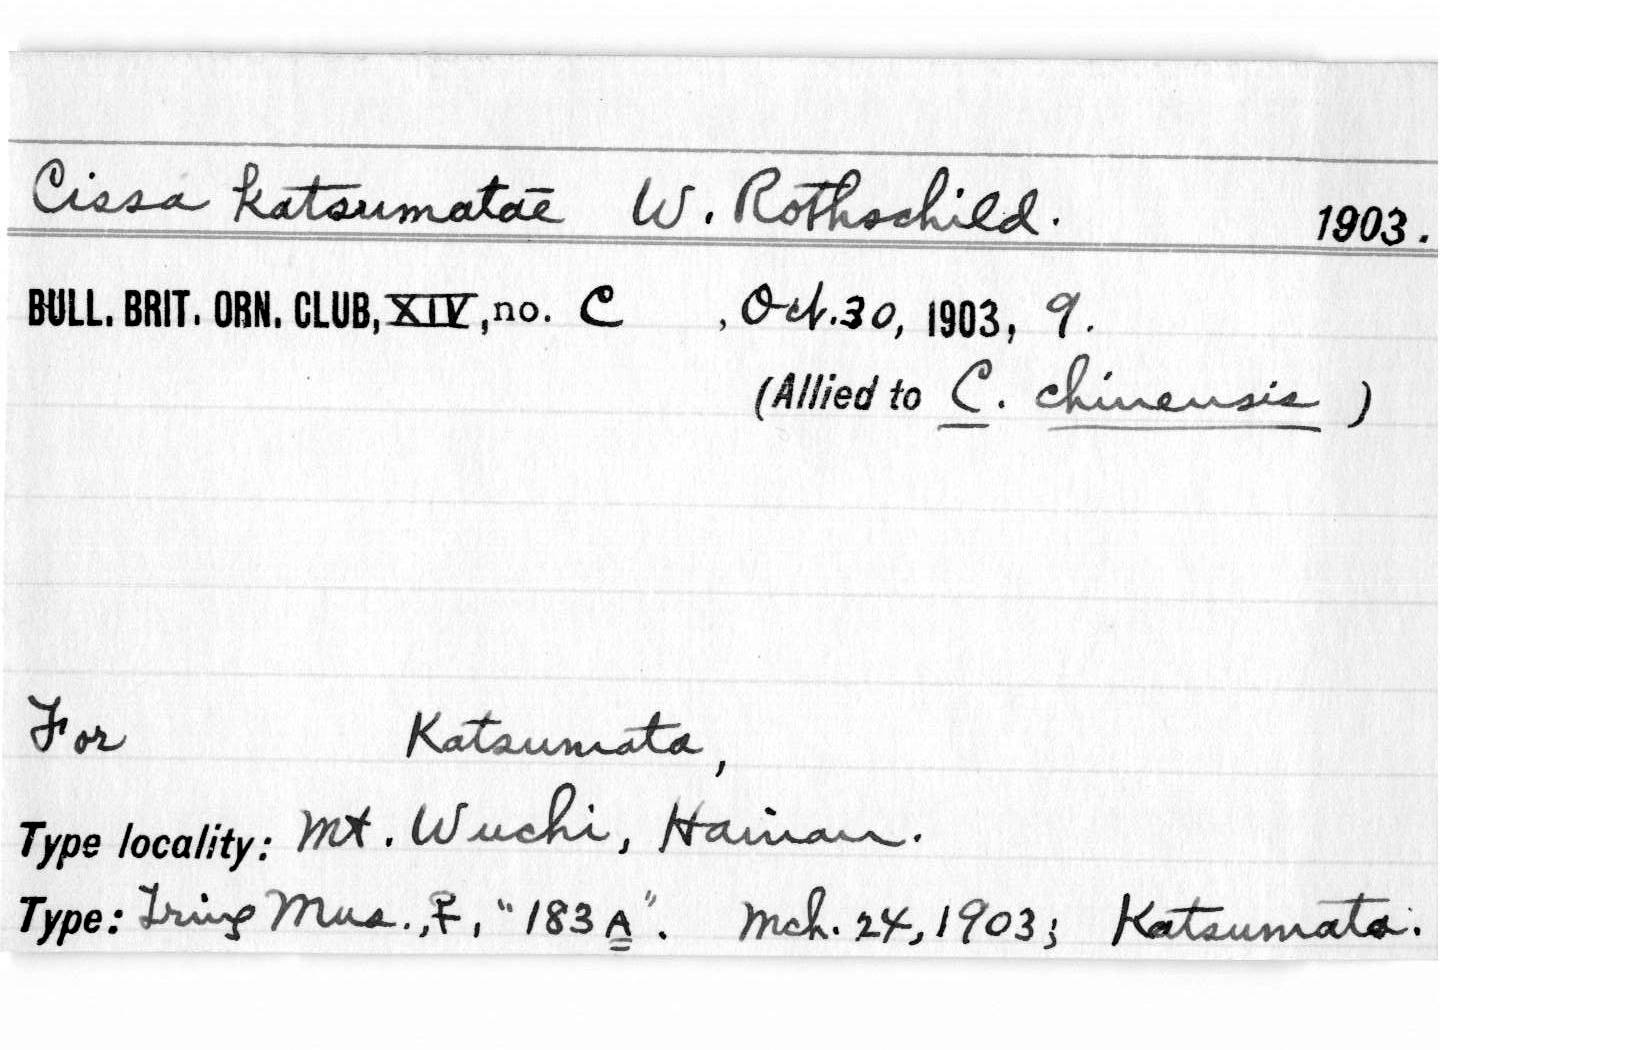 Cissa katsumatae W. Rothschild. 1903.
BULL. BRIT. ORN. CLUB, XIV, no. C , Oct. 30, 1903, 9.
(Allied to C. chinensis )
For Katsumata,
Type locality: Mt. Wuchi, Hainan.
Type: Tring Mus., F, "183 A". Mch. 24, 1903; Katsumata.